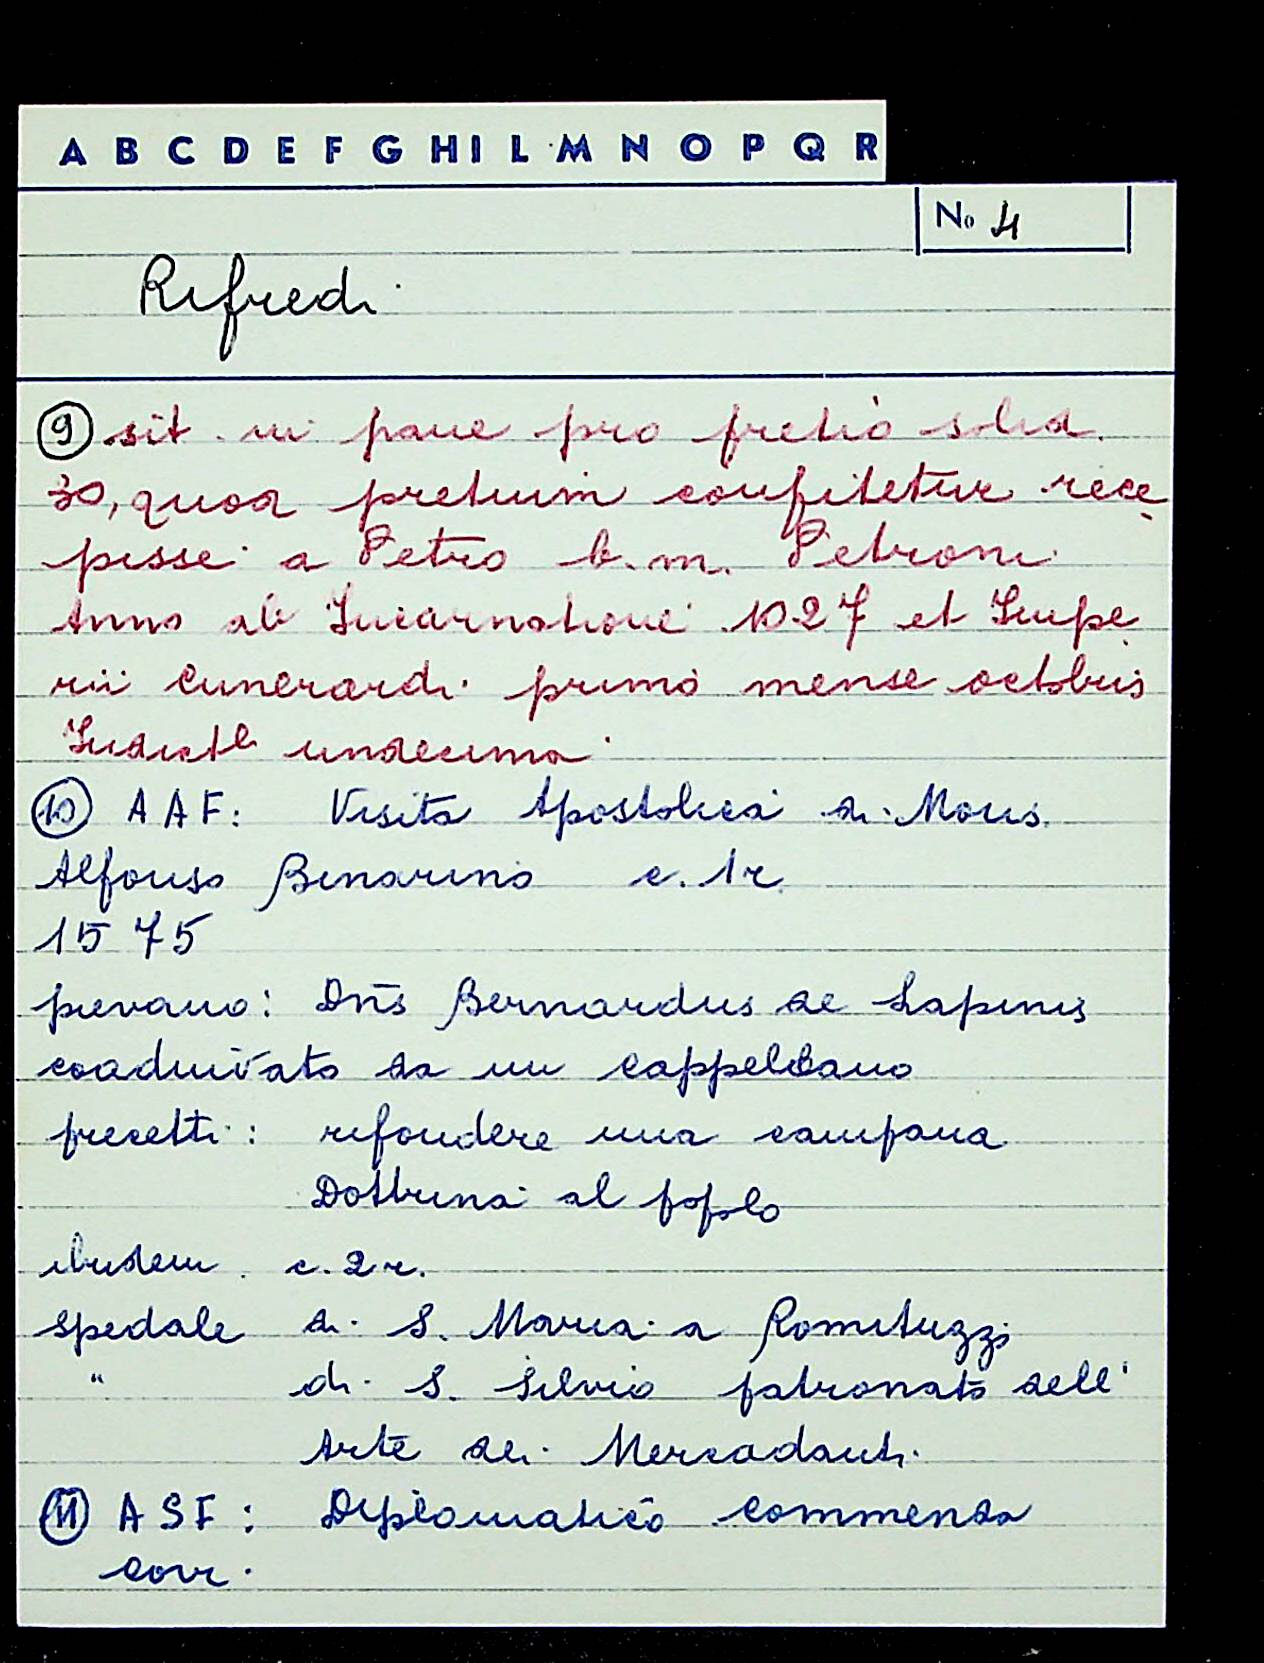 A B C D E F G H I L M N O P Q R
No 4
Rifredi
⑨ sit in pane pro pretio solid.
30, quod pretium confitetur rece
pisse a Petro b.m. Petroni
Anno ab Incarnatione 1027 et Impe
rii Cunerardi primo mense octobris
Indict.e undecima
⑩ AAF: Visita Apostolica di Mons.
Alfonso Binarino c. 1r.
1575
pievano: Dñs Bernardus de Lapinis
coadiuvato da un cappellano
precetti: rifondere una campana
Dottrina al popolo
ibidem c. 2r.
spedale di S. Maria a Romituzzi
" di S. Silvio patronato dell'
Arte dei Mercadanti
⑪ ASF: Diplomatico commenda
Covi